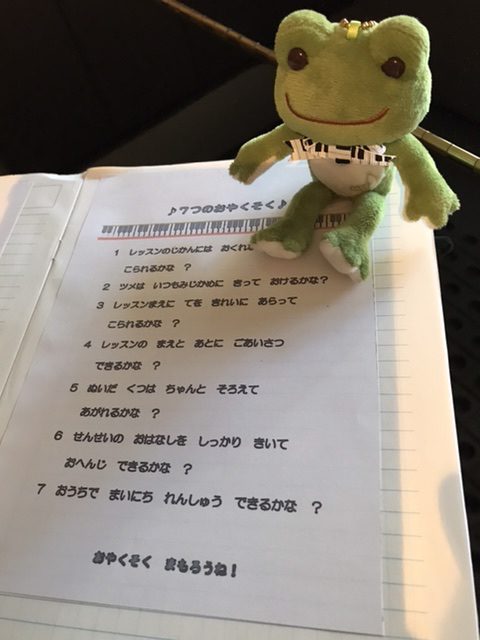 ♪7つのおやくそく♪
1 レッスンのじかんには おくれ
こられるかな ?
2 ツメは いつもみじかめに きって おけるかな?
3 レッスンまえに てを きれいに あらって
こられるかな ?
4 レッスンの まえと あとに ごあいさつ
できるかな ?
5 ぬいだ くつは ちゃんと そろえて
あがれるかな ?
6 せんせいの おはなしを しっかり きいて
おへんじ できるかな ?
7 おうちで まいにち れんしゅう できるかな ?
おやくそく まもろうね!